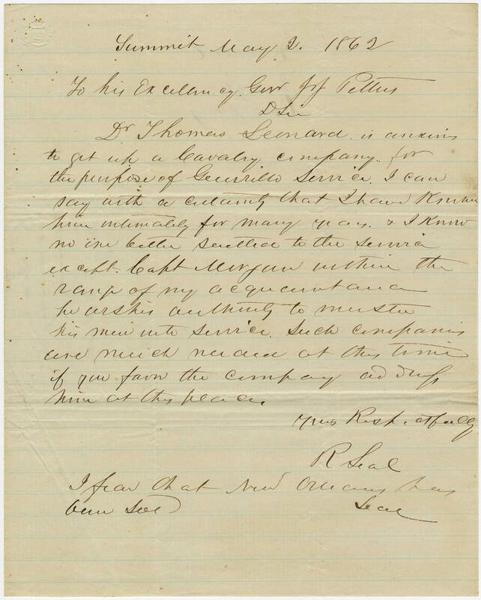 Summit May 2. 1862
To his Excellency Gov J J Pettus
D Sir
Dr Thomas Leonard is anxious
to get up a Cavalry company for
the purpose of Guerrilla Service. I can
say with a certainty that I have Known
him intimately for many years & I Know
no one better suited to the Service
except Capt Morgan within the
range of my acquaintance
he asks authority to muster
his men into service. Such companies
are much needed at this time
if you favor the company address
him at this place.
Yours Respectfully
R Seal
I fear that New Orleans has
been Sold
Seal